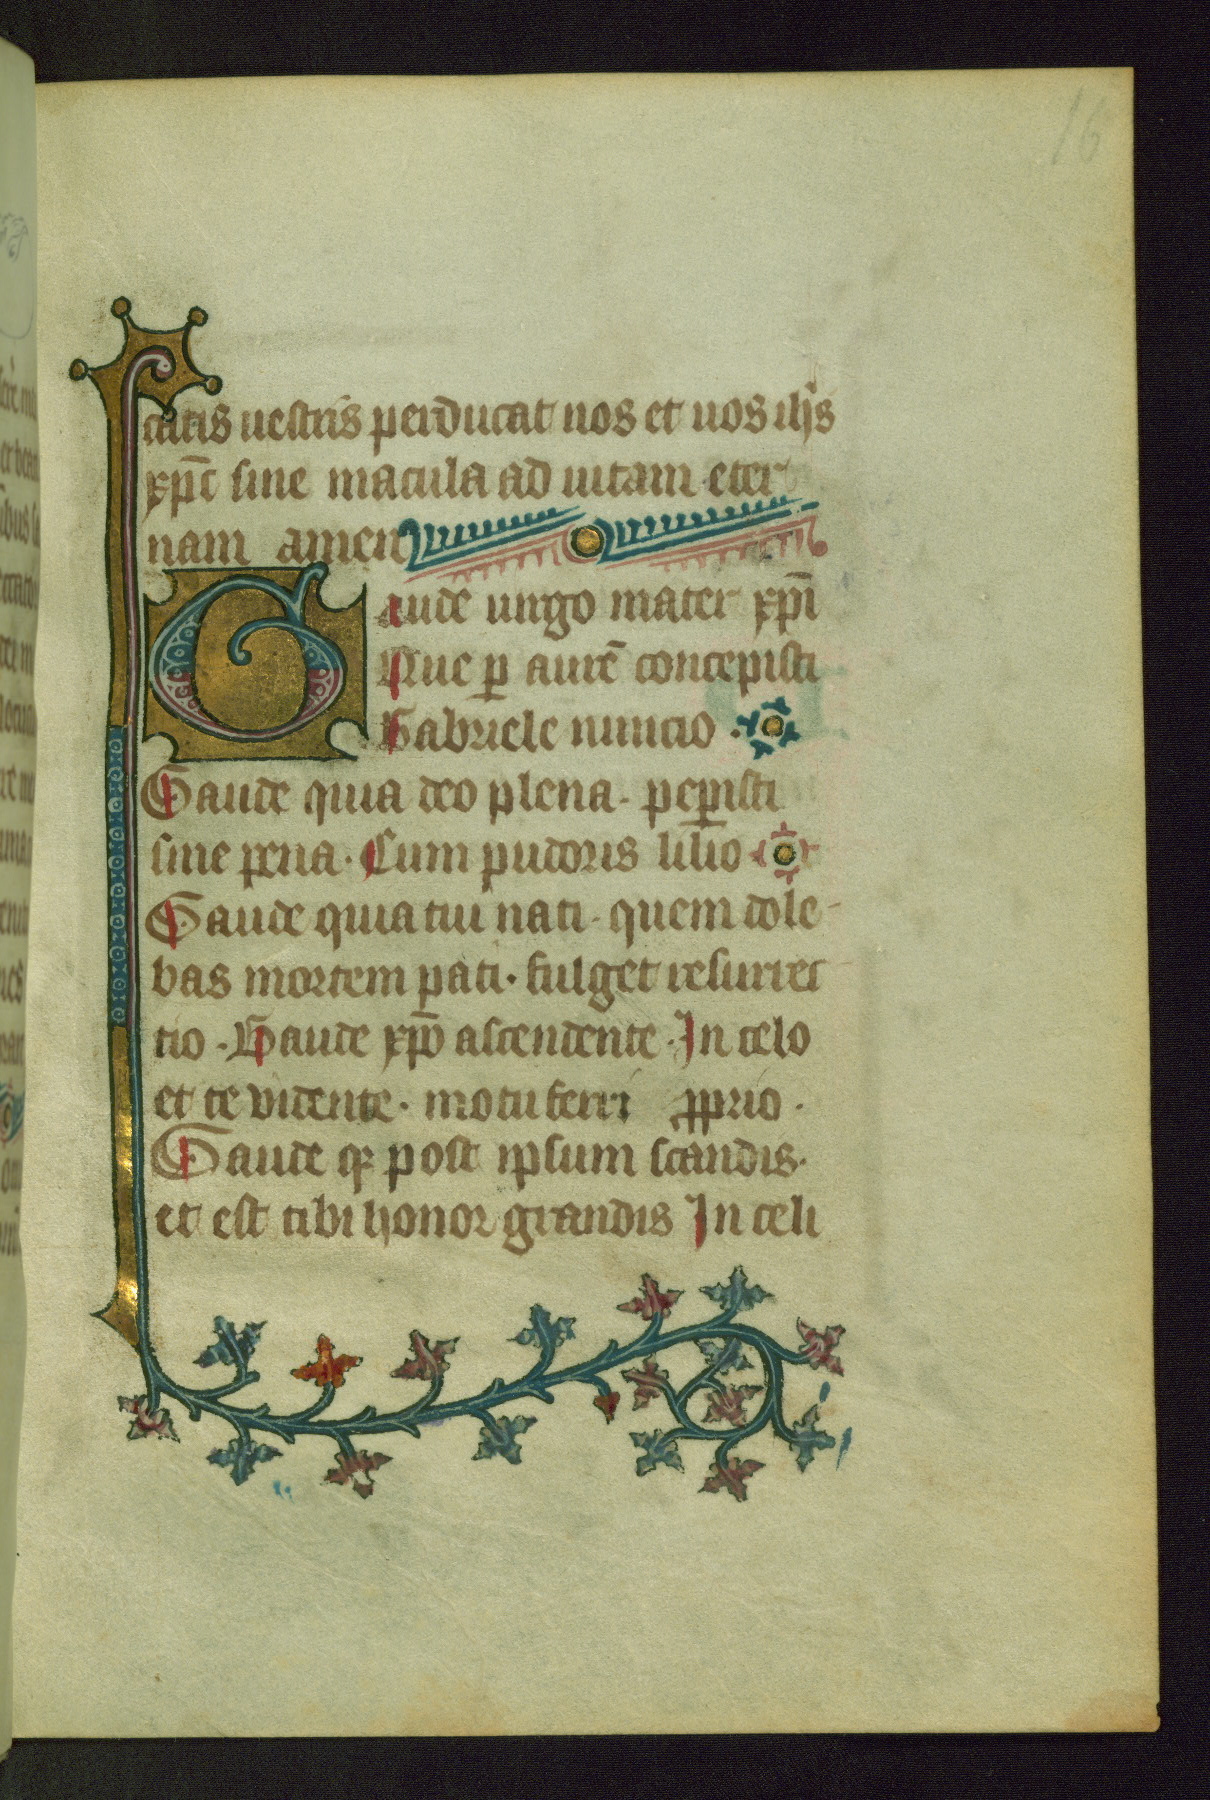 16
citatis uestris perducat nos et uos ih̄s
xp̄c sine macula ad uitam eter
nam amen
Gaude uirgo mater xp̄i
Que ꝑ aurē concepisti
Gabriele nuncio .
Gaude quia deo plena . peꝑisti
sine pena . Cum pudoris lilio
Gaude quia tui nati . quem dole-
bas mortem pati . fulget resurrec
tio . Gaude xp̄o ascendente . In celo
et te vidente . motu ferri ꝓprio .
Gaude qꝫ post ipsum scandis .
et est tibi honor grandis In celi